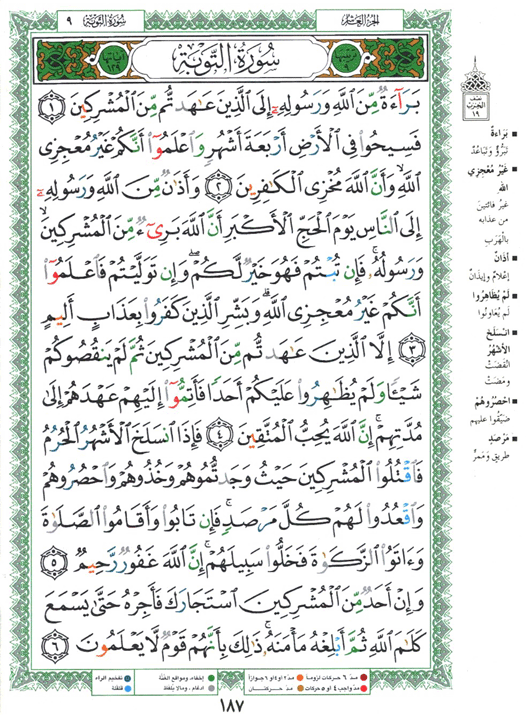 الجزء العاشر
سورة التوبة ٩
سُورَةُ التَّوْبَةِ
بَرَآءَةٌ مِّنَ ٱللَّهِ وَرَسُولِهِۦٓ إِلَى ٱلَّذِينَ عَـٰهَدتُّم مِّنَ ٱلْمُشْرِكِينَ ١
فَسِيحُوا۟ فِى ٱلْأَرْضِ أَرْبَعَةَ أَشْهُرٍ وَٱعْلَمُوٓا۟ أَنَّكُمْ غَيْرُ مُعْجِزِى
ٱللَّهِ ۙ وَأَنَّ ٱللَّهَ مُخْزِى ٱلْكَـٰفِرِينَ ٢ وَأَذَٰنٌ مِّنَ ٱللَّهِ وَرَسُولِهِۦٓ
إِلَى ٱلنَّاسِ يَوْمَ ٱلْحَجِّ ٱلْأَكْبَرِ أَنَّ ٱللَّهَ بَرِىٓءٌ مِّنَ ٱلْمُشْرِكِينَ ۙ
وَرَسُولُهُۥ ۚ فَإِن تُبْتُمْ فَهُوَ خَيْرٌ لَّكُمْ ۖ وَإِن تَوَلَّيْتُمْ فَٱعْلَمُوٓا۟
أَنَّكُمْ غَيْرُ مُعْجِزِى ٱللَّهِ ۗ وَبَشِّرِ ٱلَّذِينَ كَفَرُوا۟ بِعَذَابٍ أَلِيمٍ
٣ إِلَّا ٱلَّذِينَ عَـٰهَدتُّم مِّنَ ٱلْمُشْرِكِينَ ثُمَّ لَمْ يَنقُصُوكُمْ
شَيْـًٔا وَلَمْ يُظَـٰهِرُوا۟ عَلَيْكُمْ أَحَدًا فَأَتِمُّوٓا۟ إِلَيْهِمْ عَهْدَهُمْ إِلَىٰ
مُدَّتِهِمْ ۚ إِنَّ ٱللَّهَ يُحِبُّ ٱلْمُتَّقِينَ ٤ فَإِذَا ٱنسَلَخَ ٱلْأَشْهُرُ ٱلْحُرُمُ
فَٱقْتُلُوا۟ ٱلْمُشْرِكِينَ حَيْثُ وَجَدتُّمُوهُمْ وَخُذُوهُمْ وَٱحْصُرُوهُمْ
وَٱقْعُدُوا۟ لَهُمْ كُلَّ مَرْصَدٍ ۚ فَإِن تَابُوا۟ وَأَقَامُوا۟ ٱلصَّلَوٰةَ
وَءَاتَوُا۟ ٱلزَّكَوٰةَ فَخَلُّوا۟ سَبِيلَهُمْ ۚ إِنَّ ٱللَّهَ غَفُورٌ رَّحِيمٌ ٥
وَإِنْ أَحَدٌ مِّنَ ٱلْمُشْرِكِينَ ٱسْتَجَارَكَ فَأَجِرْهُ حَتَّىٰ يَسْمَعَ
كَلَـٰمَ ٱللَّهِ ثُمَّ أَبْلِغْهُ مَأْمَنَهُۥ ۚ ذَٰلِكَ بِأَنَّهُمْ قَوْمٌ لَّا يَعْلَمُونَ ٦
نصف
الحزب
١٩
بَرَاءةٌ
تَبَرُّؤٌ وَتَبَاعُدٌ
غَيْرُ مُعْجِزِي
الله
غيرُ فائتينَ
من عذابه
بالهَرَبِ
أَذَانٌ
إعْلامٌ وإيذانٌ
لَمْ يُظَاهِرُوا
لَم يُعَاوِنُوا
انْسَلَخَ
الأَشْهُرُ
انْقَضَتْ
ومَضَتْ
احْصُرُوهُمْ
ضَيِّقُوا عليهم
مَرْصَدٍ
طريقٍ ومَمَرٍّ
مدّ ٦ حركات لزوماً
مدّ ٢ أو ٤ أو ٦ جوازاً
إخفاء، ومواقع الغُنَّة
تفخيم الراء
مدّ واجب ٤ أو ٥ حركات
مدّ حركتان
إدغام، وما لا يُلفَظ
قلقلة
١٨٧